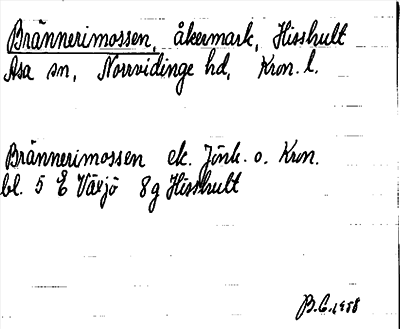 Brännerimossen, åkermark, Hisshult
Asa sn, Norrvidinge hd, Kron. l.
Brännerimossen ek. Jönk. o. Kron.
bl. 5 E Växjö 8 g Hisshult
B.C. 1958